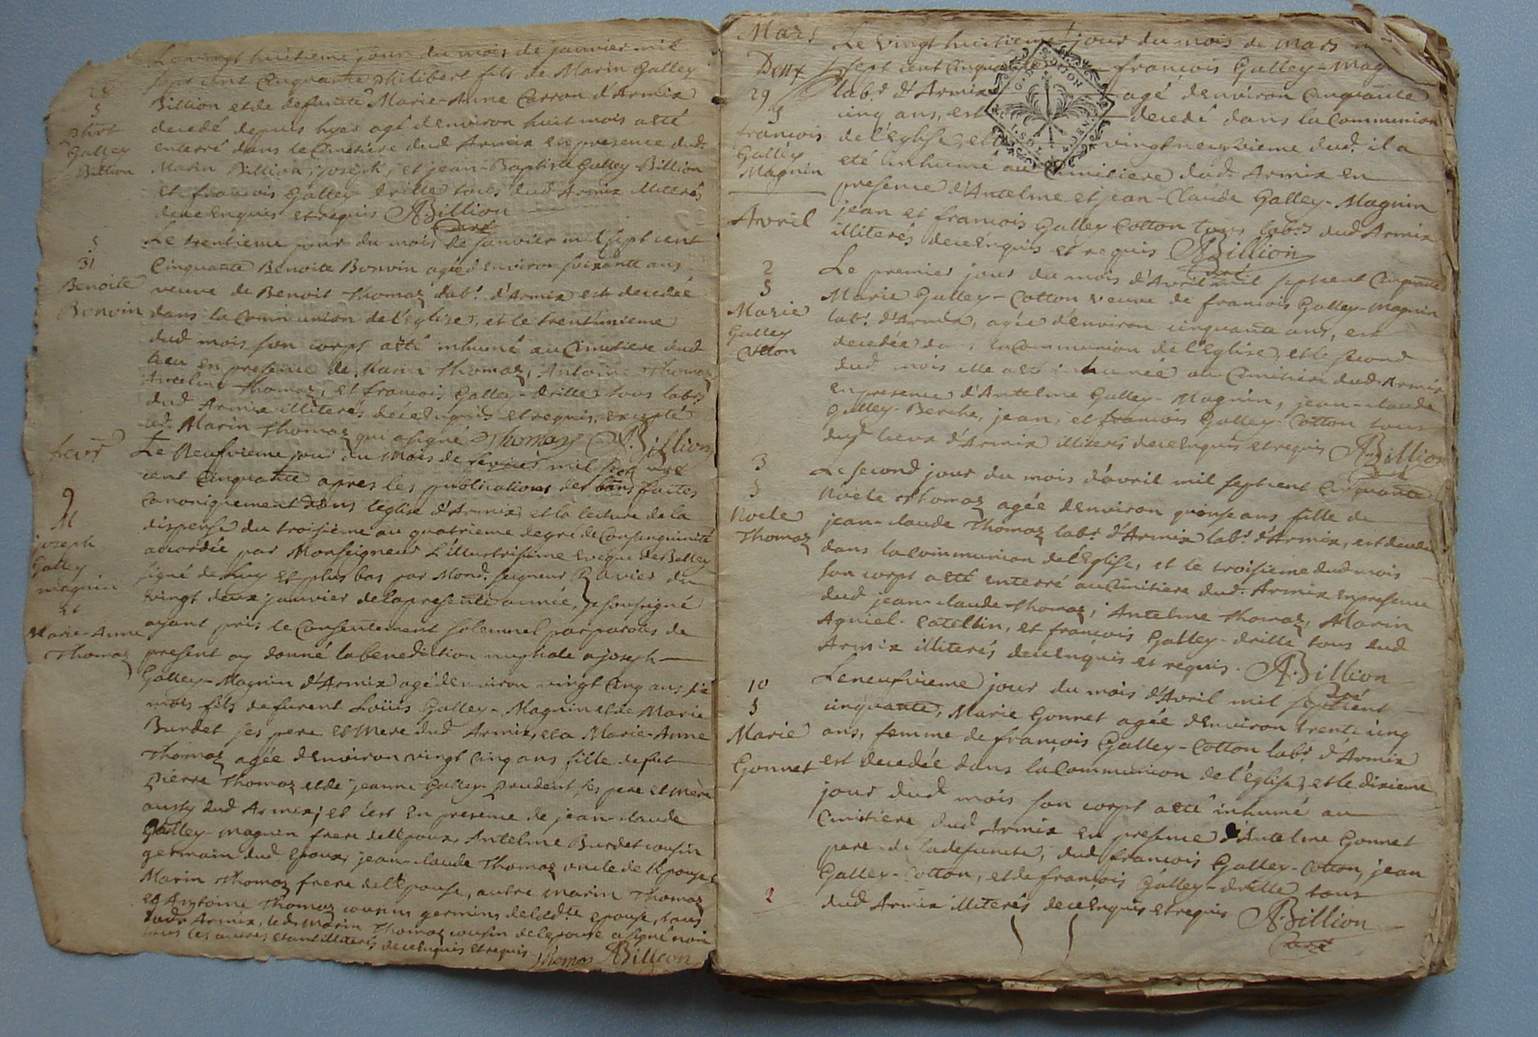 Le vingt huitieme jour du mois de janvier mil
sept cent Cinquante philibert fils de Marin Galley
Billion et de defuncte Marie-Anne Carron d'Armix
decedé depuis hyer agé d'environ huit mois a eté
enterré dans le Cimetiere dud. Armix en presence dud.
Marin Billion, joseph, et jean-Baptiste Galley-Billion
et françois Galley-drille tous dud. Armix illiterés
de ce enquis et requis ABillion
Curé
28
S
phrt
Galley
Billion
Le trentieme jour du mois de janvier mil sept cent
Cinquante Benoite Bonvin agée d'environ soixante ans
veuve de Benoit Thomaz lab.r d'Armix est decedée
dans la Communion de l'eglise, et le trentunieme
dud. mois son corps a eté inhumé au Cimetiere dud.
lieu en presence de Marin Thomaz, Antoine Thomaz
Anselme Thomaz, et françois Galley-drille tous lab.rs
dud. Armix illiterés de ce enquis et requis, excepté
led. Marin Thomaz qui a signé Thomaz ABillion
S
31
Benoite
Bonvin
fevr
Le Neufvieme jour du mois de fevrier mil sept
cent Cinquante apres les publications des bans faites
Canoniquement dans l'eglise d'Armix, et la lecture de la
dispense du troisieme au quatrieme degré de Consanguinité
accordée par Monseigneur L'illustrissime eveque de Belley
signé de luy et plus bas par Mond. seigneur Ravier du
vingt deux janvier de la presente année, je soussigné
ayant pris le Consentement solemnel par paroles de
present ay donné la benediction nuptiale a joseph
Galley-Magnin d'Armix agé d'environ vingt cinq ans six
mois fils de furent Loüis Galley-Magnin et de Marie
Burdet ses pere et mere dud. Armix, et a Marie-Anne
Thomaz agée d'environ vingt cinq ans fille de fut
Pierre Thomaz et de jeanne Galley- ses pere et mere
aussy dud. Armix; et c'est en presence de jean-claude
Galley-magnin frere de l'epoux, Antelme Burdet cousin
germain dud. epoux, jean-claude Thomaz oncle de l'epouse
Marin Thomaz frere de l'epouse, autre marin Thomaz
et Antoine Thomaz cousins germins de ladte epouse, tous
dud. Armix, led. Marin Thomaz cousin de l'epouse a signé non
tous les autres etant illiterés de ce enquis et requis. Thomas ABillion
9
M
joseph
Galley
magnin
et
Marie-Anne
Thomaz
Mars
Le vingt huitieme jour du mois de mars
sept cent Cinquante françois Galley-Mag
lab.r d'Armix agé d'environ Cinquante
cinq ans, est decedé dans la Communion
de l'eglise, et le vingt neufvieme dud. il a
eté inhumé au Cimitiere dud. Armix en
presence d'Antelme et jean-Claude Galley-Magnin
jean et françois Galley Cotton tous lab.rs dud. Armix
illiterés de ce enquis et requis ABillion
Curé
29
S
françois
Galley
Magnin
Avril
Le premier jour du mois d'Avril mil sept cent Cinquante
Marie Galley-Cotton veuve de françois Galley-Magnin
lab.r d'Armix, agée d'environ cinquante ans, est
decedée da la Communion de l'Eglise, et le second
dud. mois elle a eté inhumée au Cimitiere dud. Armix
en presence d'Antelme Galley-Magnin, jean-claude
Galley-Berche, jean, et françois Galley-Cotton tous
dud. lieux d'Armix illiterés de ce enquis et requis ABillion
Curé
2
S
Marie
Galley
Cotton
Le second jour du mois d'avril mil sept cent Cinquante
Noele Thomaz agée d'environ quinse ans fille de
jean-claude Thomaz lab.r d'Armix lab.r d'Armix, est decedée
dans la Communion de l'Eglise, et le troisieme dud. mois
son corps a eté enterré au Cimitiere dud. Armix en presence
dud. jean-claude Thomaz, Antelme Thomaz, Marin
Agniel-Catellin, et françois Galley-drille tous dud.
Armix illiterés de ce enquis et requis. ABillion
Curé
3
S
Noele
Thomaz
Le neufvieme jour du mois d'Avril mil sept cent
cinquante, Marie Gonnet agée d'environ trente cinq
ans, femme de françois Galley-Cotton lab.r d'Armix
est decedée dans la Communion de l'église, et le dixieme
jour dud. mois son corps a eté inhumé au
Cimitiere dud. Armix en presence d'Antelme Gonnet
pere de la defuncte, dud. françois Galley-Cotton, jean
Galley-Cotton, et de françois Galley-drille tous
dud. Armix illiterés de ce enquis et requis ABillion
Curé
10
S
Marie
Gonnet
2